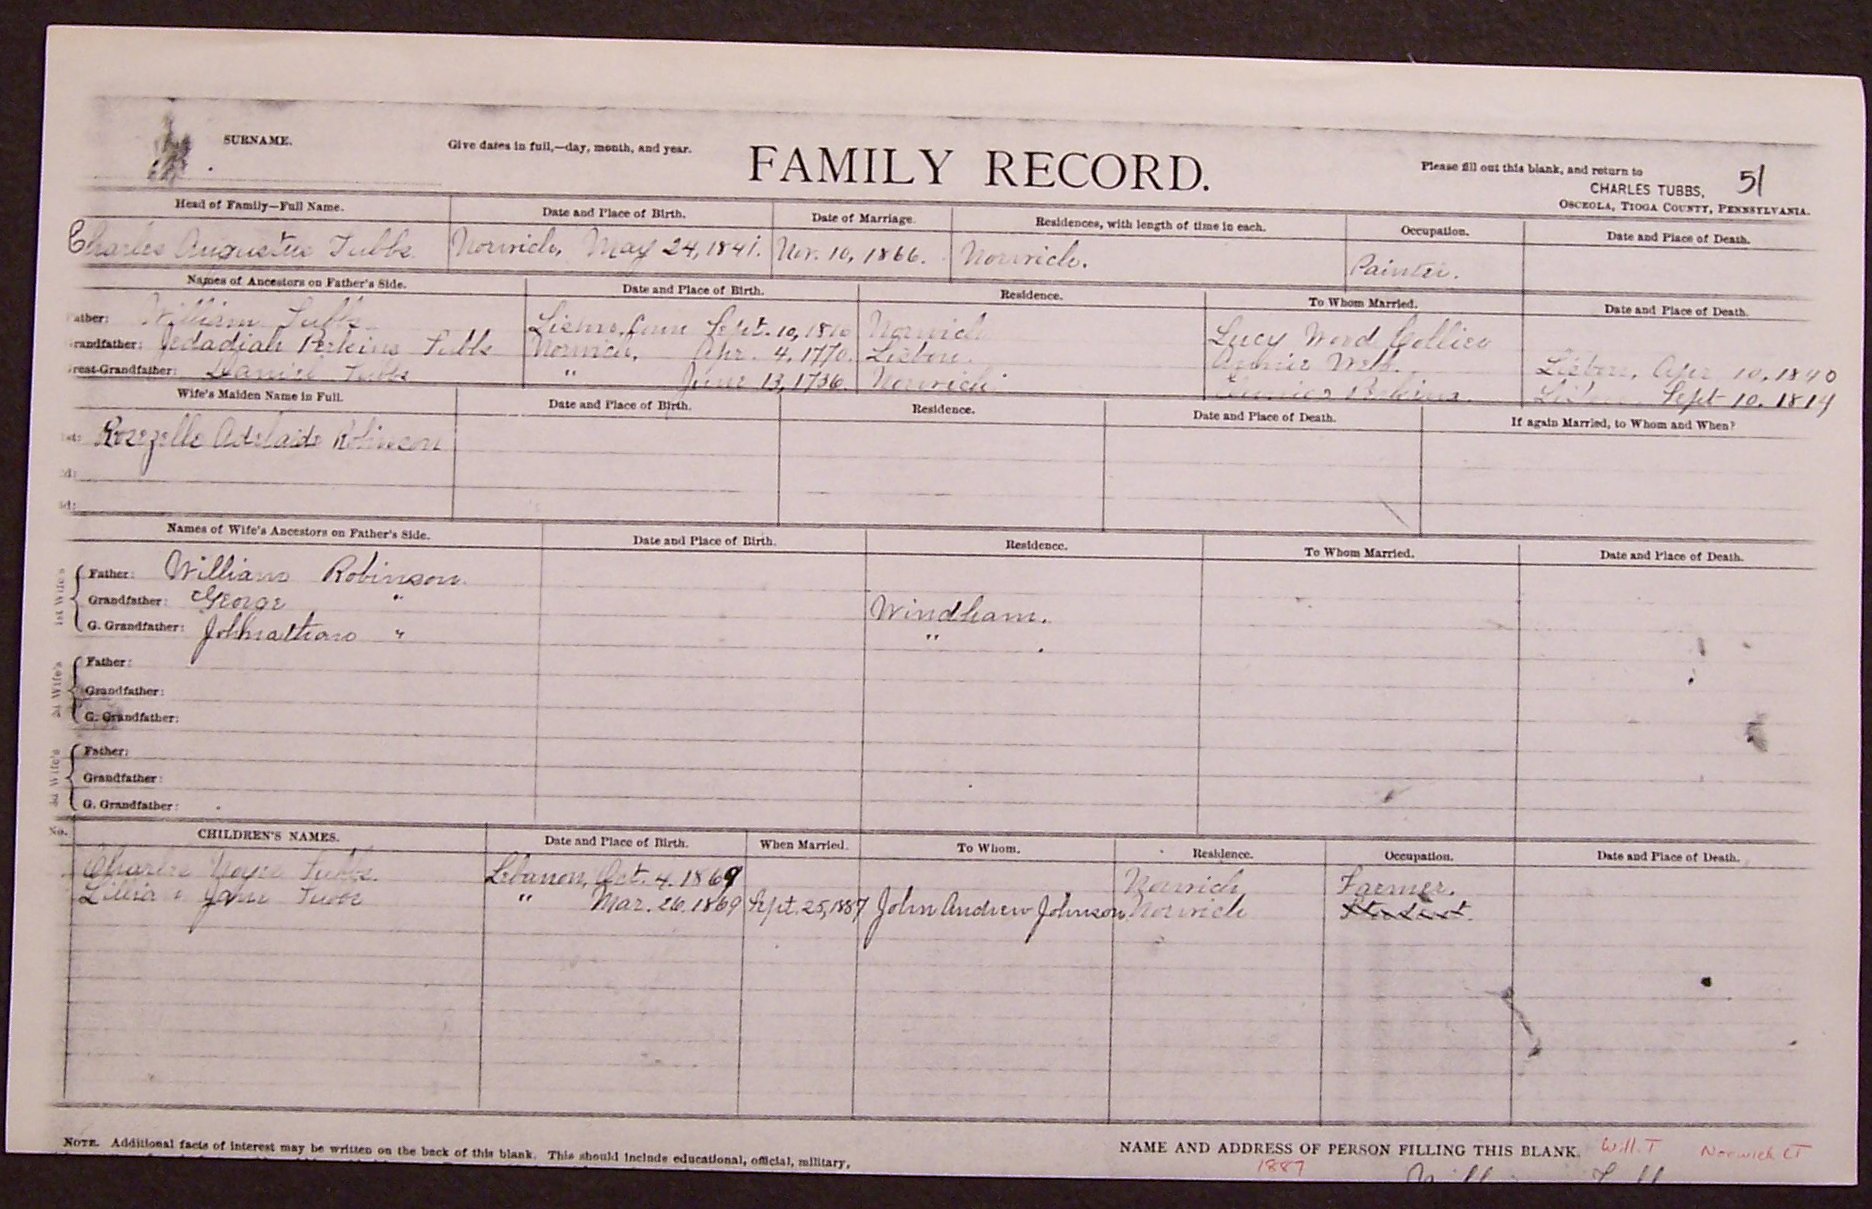 SURNAME.
Give dates in full,—day, month, and year.
FAMILY RECORD.
Please fill out this blank, and return to
CHARLES TUBBS,
OSCEOLA, TIOGA COUNTY, PENNSYLVANIA.
51
Head of Family—Full Name. Date and Place of Birth. Date of Marriage. Residences, with length of time in each. Occupation. Date and Place of Death.
Charles Augustus Tubbs Norwich, May 24, 1841. Nov. 10, 1866. Norwich. Painter.
Names of Ancestors on Father's Side. Date and Place of Birth. Residence. To Whom Married. Date and Place of Death.
ather: William Tubbs Sept. 10, Norwich Lucy Word
randfather: Jedadiah Perkins Tubbs Norwich, Apr. 4, 1770. Lisbon. Lisbon, Apr 10, 1840
reat-Grandfather: Daniel Tubbs " June 13, 1736. Norwich Sept 10. 1814
Wife's Maiden Name in Full. Date and Place of Birth. Residence. Date and Place of Death. If again Married, to Whom and When?
1st: Rozezelle Adelaide Robinson
2d:
3d:
Names of Wife's Ancestors on Father's Side. Date and Place of Birth. Residence. To Whom Married. Date and Place of Death.
1st Wife's
Father: William Robinson.
Grandfather: George " Windham.
G. Grandfather: Johnathan " " .
2d Wife's
Father:
Grandfather:
G. Grandfather:
3d Wife's
Father:
Grandfather:
G. Grandfather:
No. CHILDREN'S NAMES. Date and Place of Birth. When Married. To Whom. Residence. Occupation. Date and Place of Death.
Charles Noyes Tubbs. Lebanon, Oct. 4. 1869 Norwich, Farmer.
Jane Tubbs " Mar. 26. 1869 Sept. 25, 1887 John Andrew Johnson Norwich Student.
NOTE. Additional facts of interest may be written on the back of this blank. This should include educational, official, military,
NAME AND ADDRESS OF PERSON FILLING THIS BLANK. Will. T Norwich CT
1887